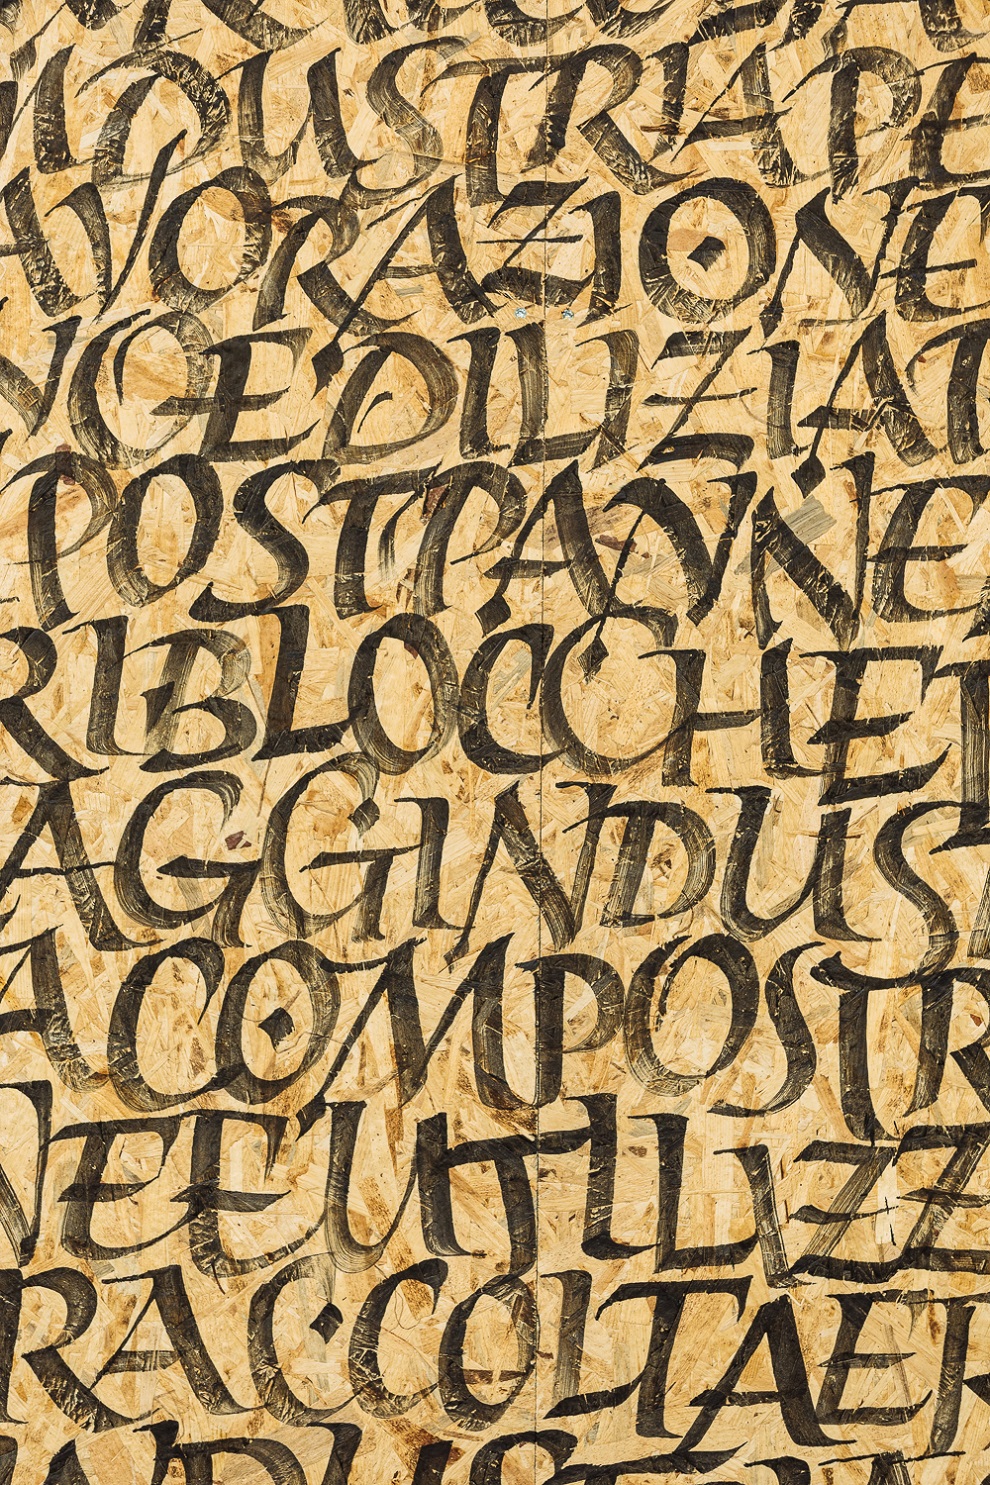 NDUSTRIA PE
AVORAZIONE
NO E' DILIZIAT
POST PAYNE
RI BLOCCHET
AGGINDUS
A COMPOSTR
NE E UTILIZZ
RACCOLTA E
INDUSTRIA